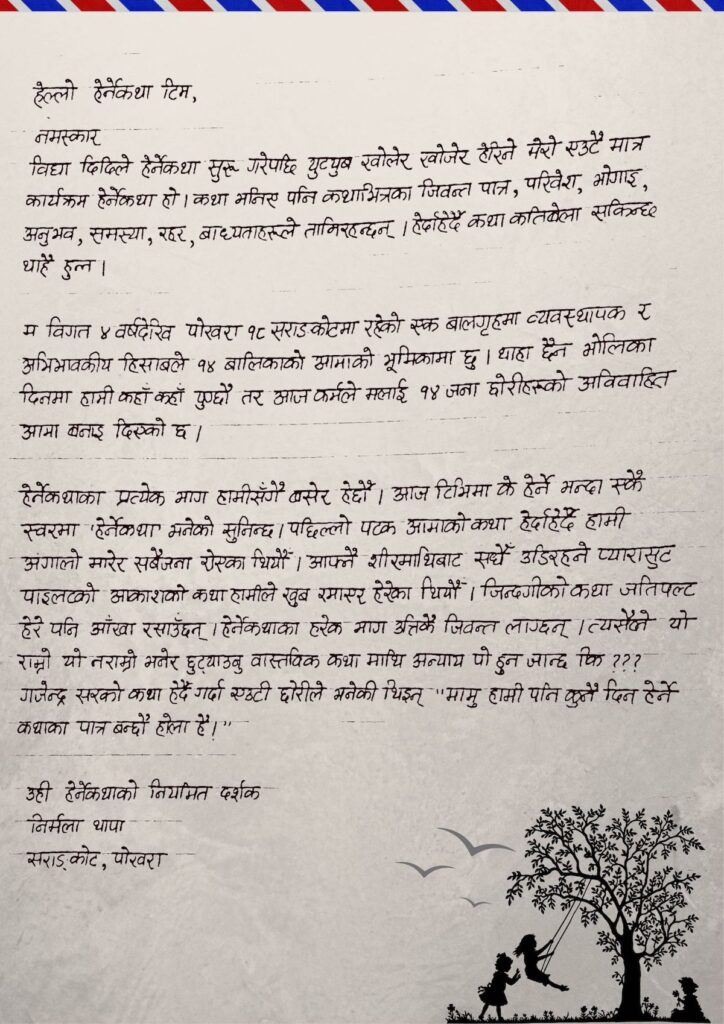 हेल्लो हेर्नेकथा टिम,
नमस्कार
विद्या दिदिले हेर्नेकथा सुरू गरेपछि युट्युब खोलेर खोजेर हेरिने मेरो एउटै मात्र
कार्यक्रम हेर्नेकथा हो । कथा भनिए पनि कथाभित्रका जिवन्त पात्र, परिवेश, भोगाइ,
अनुभव, समस्या, रहर, बाध्यताहरूले तानिरहन्छन् । हेर्दाहेर्दै कथा कतिबेला सकिन्छ
थाहै हुन्न ।
म विगत ४ वर्षदेखि पोखरा १८ सराङकोटमा रहेको एक बालगृहमा व्यवस्थापक र
अभिभावकीय हिसाबले १४ बालिकाको आमाको भूमिकामा छु । थाहा छैन भोलिका
दिनमा हामी कहाँ कहाँ पुग्छौं तर आज कर्मले मलाई १४ जना छोरीहरूको अविवाहित
आमा बनाइ दिएको छ ।
हेर्नेकथाका प्रत्येक भाग हामीसँगै बसेर हेर्छौं । आज टिभिमा के हेर्ने भन्दा एकै
स्वरमा 'हेर्नेकथा' भनेको सुनिन्छ । पछिल्लो पटक आमाको कथा हेर्दाहेर्दै हामी
अंगालो मारेर सबैजना रोएका थियौं । आफ्नै शीरमाथिबाट सधैँ उडिरहने प्यारासुट
पाइलटको आकाशको कथा हामीले खुब रमाएर हेरेका थियौं । जिन्दगीको कथा जतिपल्ट
हेरे पनि आँखा रसाउँछन् । हेर्नेकथाका हरेक भाग उत्तिकै जिवन्त लाग्छन् । त्यसैले यो
राम्रो यो नराम्रो भनेर छुट्याउनु वास्तविक कथा माथि अन्याय पो हुन जान्छ कि ???
गजेन्द्र सरको कथा हेर्दै गर्दा एउटी छोरीले भनेकी थिइन् "मामु हामी पनि कुनै दिन हेर्ने
कथाका पात्र बन्छौं होला है।"
उही हेर्नेकथाको नियमित दर्शक
निर्मला थापा
सराङ्कोट, पोखरा